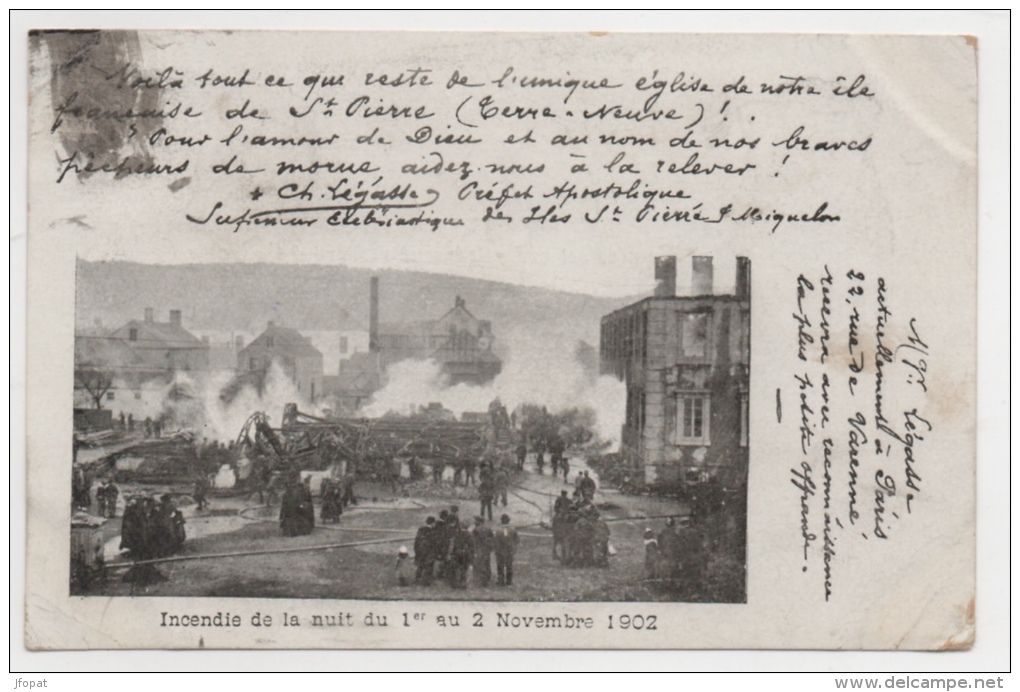 Voilà tout ce qui reste de l'unique église de notre île
française de St Pierre (Terre-Neuve)!
Pour l'amour de Dieu et au nom de nos braves
pêcheurs de morue, aidez-nous à la relever!
+ Ch. Légasse, Préfet Apostolique
Supérieur Ecclésiastique des Iles St Pierre & Miquelon
Mgr. Légasse
actuellement à Paris
22, rue de Varenne
recevra avec reconnaissance
la plus petite offrande.
Incendie de la nuit du 1er au 2 Novembre 1902
jfopat
www.delcampe.net